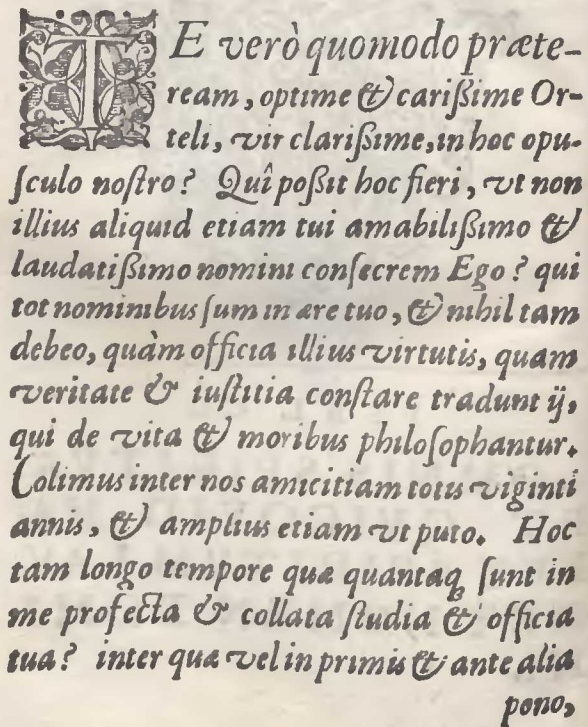 TE verò quomodo præte-
ream, optime & carißime Or-
teli, vir clarißime, in hoc opu-
ſculo noſtro? Quî poßit hoc fieri, vt non
illius aliquid etiam tui amabilißimo &
laudatißimo nomini conſecrem Ego? qui
tot nominibus ſum in ære tuo, & nihil tam
debeo, quàm officia illius virtutis, quam
veritate & iuſtitia conſtare tradunt ij,
qui de vita & moribus philoſophantur.
Colimus inter nos amicitiam totis viginti
annis, & amplius etiam vt puto. Hoc
tam longo tempore quæ quantaq; ſunt in
me profecta & collata ſtudia & officia
tua? inter quæ vel in primis & ante alia
pono,